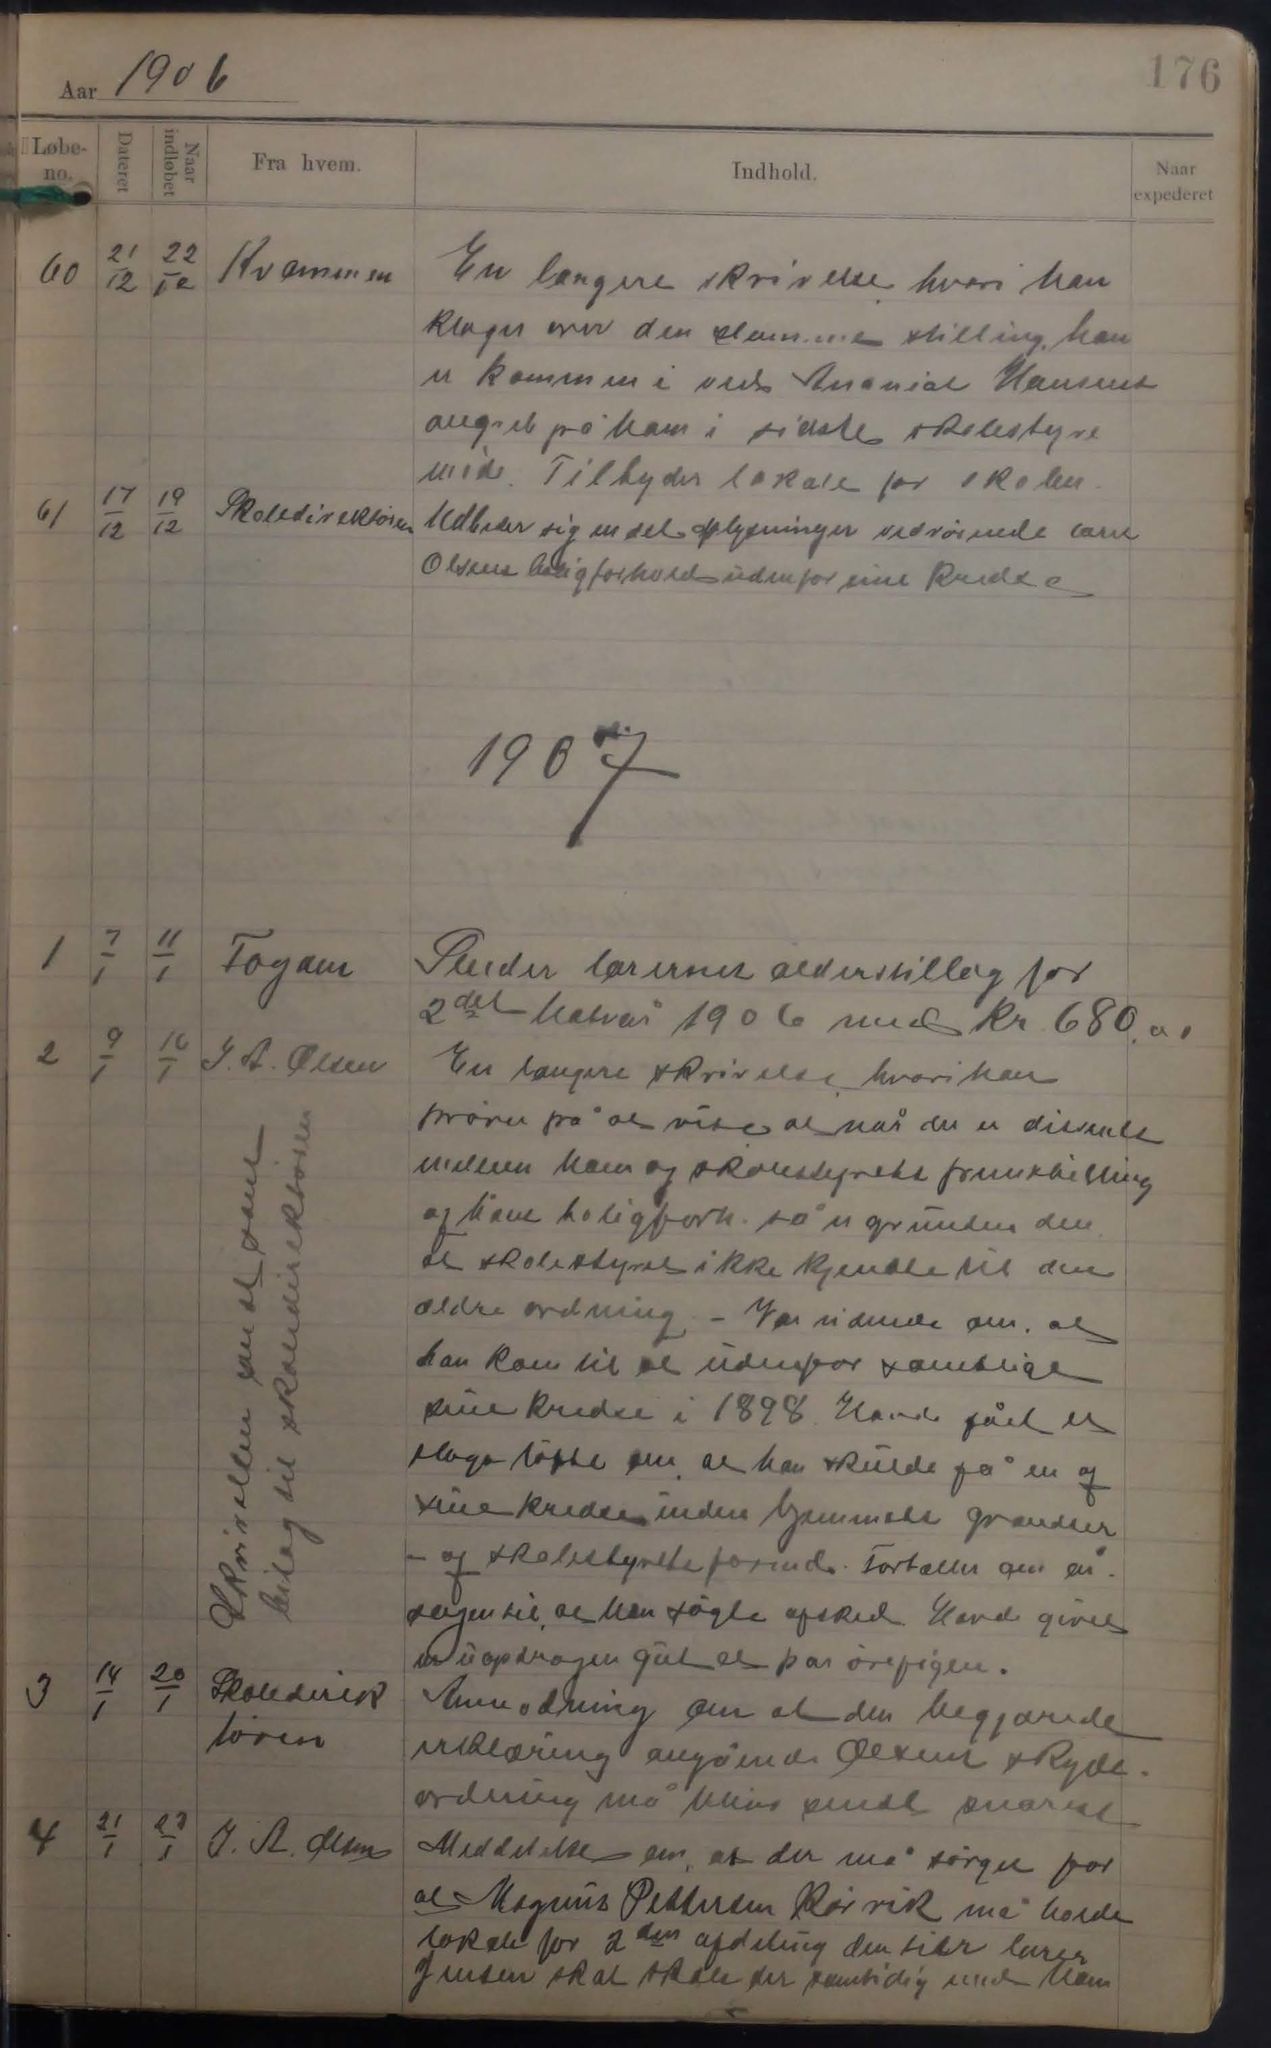 176
Aar 1906
Løbe-no. Dateret Naar indløbet Fra hvem. Indhold. Naar expederet
60 21/12 22/12 Kvammen En længere skrivelse, hvori han
klager over den slemme stilling, han
er kommen i ved Ananias Hansens
angreb på ham i sidste skolestyre
møde. Tilbyder lokale for skolen.
61 17/12 19/12 Skoledirektøren Udbeder sig en del oplysninger vedrørende lærer
Olsens boligforhold udenfor sine kredse
1907
1 7/1 11/1 Fogden Sender lærernes alderstillæg for
2det halvår 1906 med Kr. 680.00
2 9/1 16/1 J. A. Olsen En længere skrivelse, hvori han
prøver på at vise at når der er dissents
mellem ham og skolestyrets fremstilling
af hans boligforh. så er grunden den
at skolestyret ikke kjendte til den
ældre ordning. – Var vidende om, at
han kom til at udenfor samtlige
sine kredse i 1898. Havde fået et
slags løfte om, at han skulde få en af
sine kredse inden hjemmets grændser
– af skolestyrets formd. Fortæller om år-
sagen til, at han søgte afsked. Havde givet
en uopdragen gut et par ørefigen.
Skrivelsen sendt som
bilag til skoledirektøren
3 14/1 20/1 Skoledirek
tøren Anmodning om at den begjærede
erklæring angående Olsens skyds-
ordning må blive sendt snarest
4 21/1 23/1 J. A. Olsen Meddelelse om, at der må sørges for
at Magnus Pettersen Rørvik må holde
lokale for 2den afdeling den tid lærer
Jensen skal skole der samtidig med ham